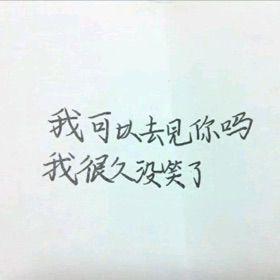 我可以去见你吗
我很久没笑了